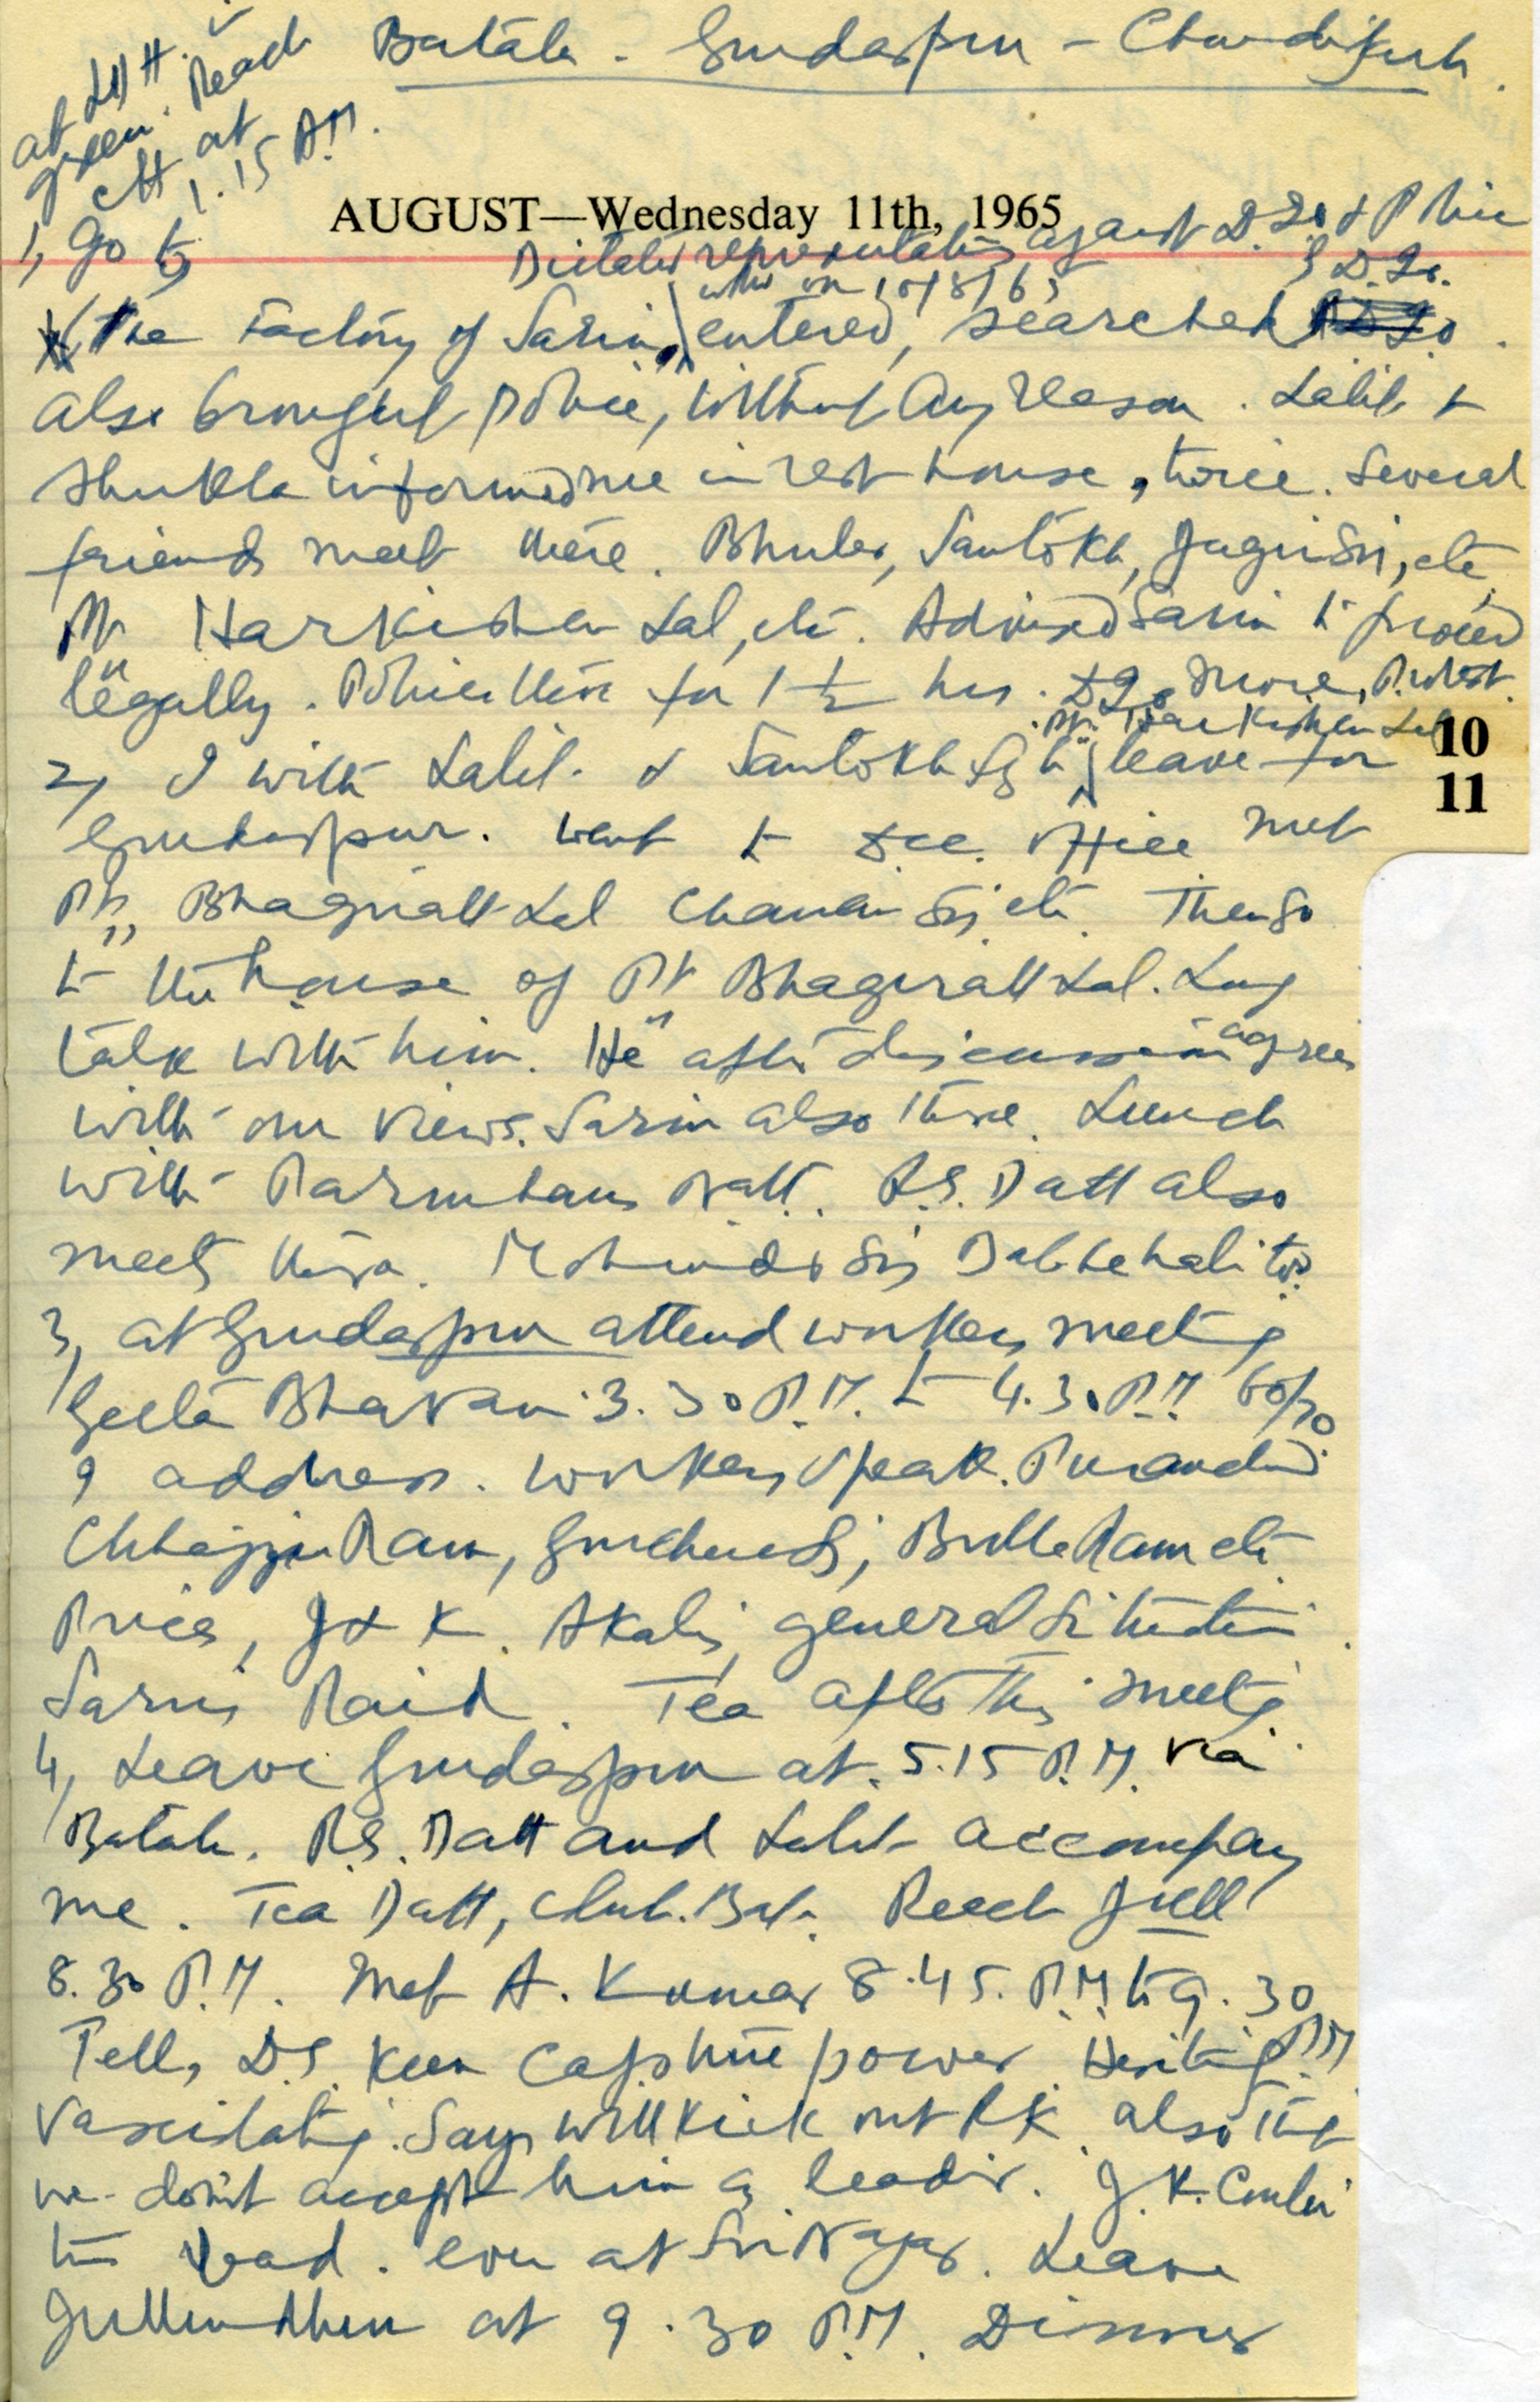 Batala - Gurdaspur - Chandigarh.
at LDH.
green. Reach
CH at
1.15 A.M.
AUGUST—Wednesday 11th, 1965
1, Go to
Dictated representation against D.I.s & Police
on 10/8/65
3 D.Is.
The Factory of Sarin, entered, searched
also brought police, without any reason. Lalit &
Shukla informed me in rest house, twice. Several
friends meet there. Bhuler, Santokh, Jagir Sri, etc,
Mr Harkishen Lal, etc. Advised Sarin to proceed
legally. Police there for 1 1/2 hrs. more, Protest.
Mr. Harkishen Lal
2, I with Lalit & Santokh Sgh leave for
10
11
Gurdaspur. Went to D.C. office met
Pt. Bhagirath Lal Chanan Sri, etc. Then go
to the house of Pt Bhagirath Lal. Long
talk with him. He after discussion agrees
with our views. Sarin also there. Lunch
with Parmhans Natt. R.S. Datt also
meets there. Mohinder Sri too.
3, at Gurdaspur attend workers meeting
Geeta Bhavan 3.30 P.M. to 4.30 P.M 60/70
I address. Workers speak.
Chhajju Ram, Sri, Bulla Ram etc
Prices, J & K. Akalis, general Situation.
Sarin Raid. Tea after this meeting
4, Leave Gurdaspur at 5.15 P.M. via
Batala. R.S. Datt and Lalit accompany
me. Tea Datt, club. Bat. Reach Jull
8.30 P.M. Met A. Kumar 8.45. P.M. to 9.30
P.M
Tells, D.S. keen capture power. Hesitating
vascilating. Says will kick out R.K. also that
we don't accept him as leader. J.K. Condi
too bad. even at SriNagar. Leave
Jullundhur at 9.30 P.M. Dinner